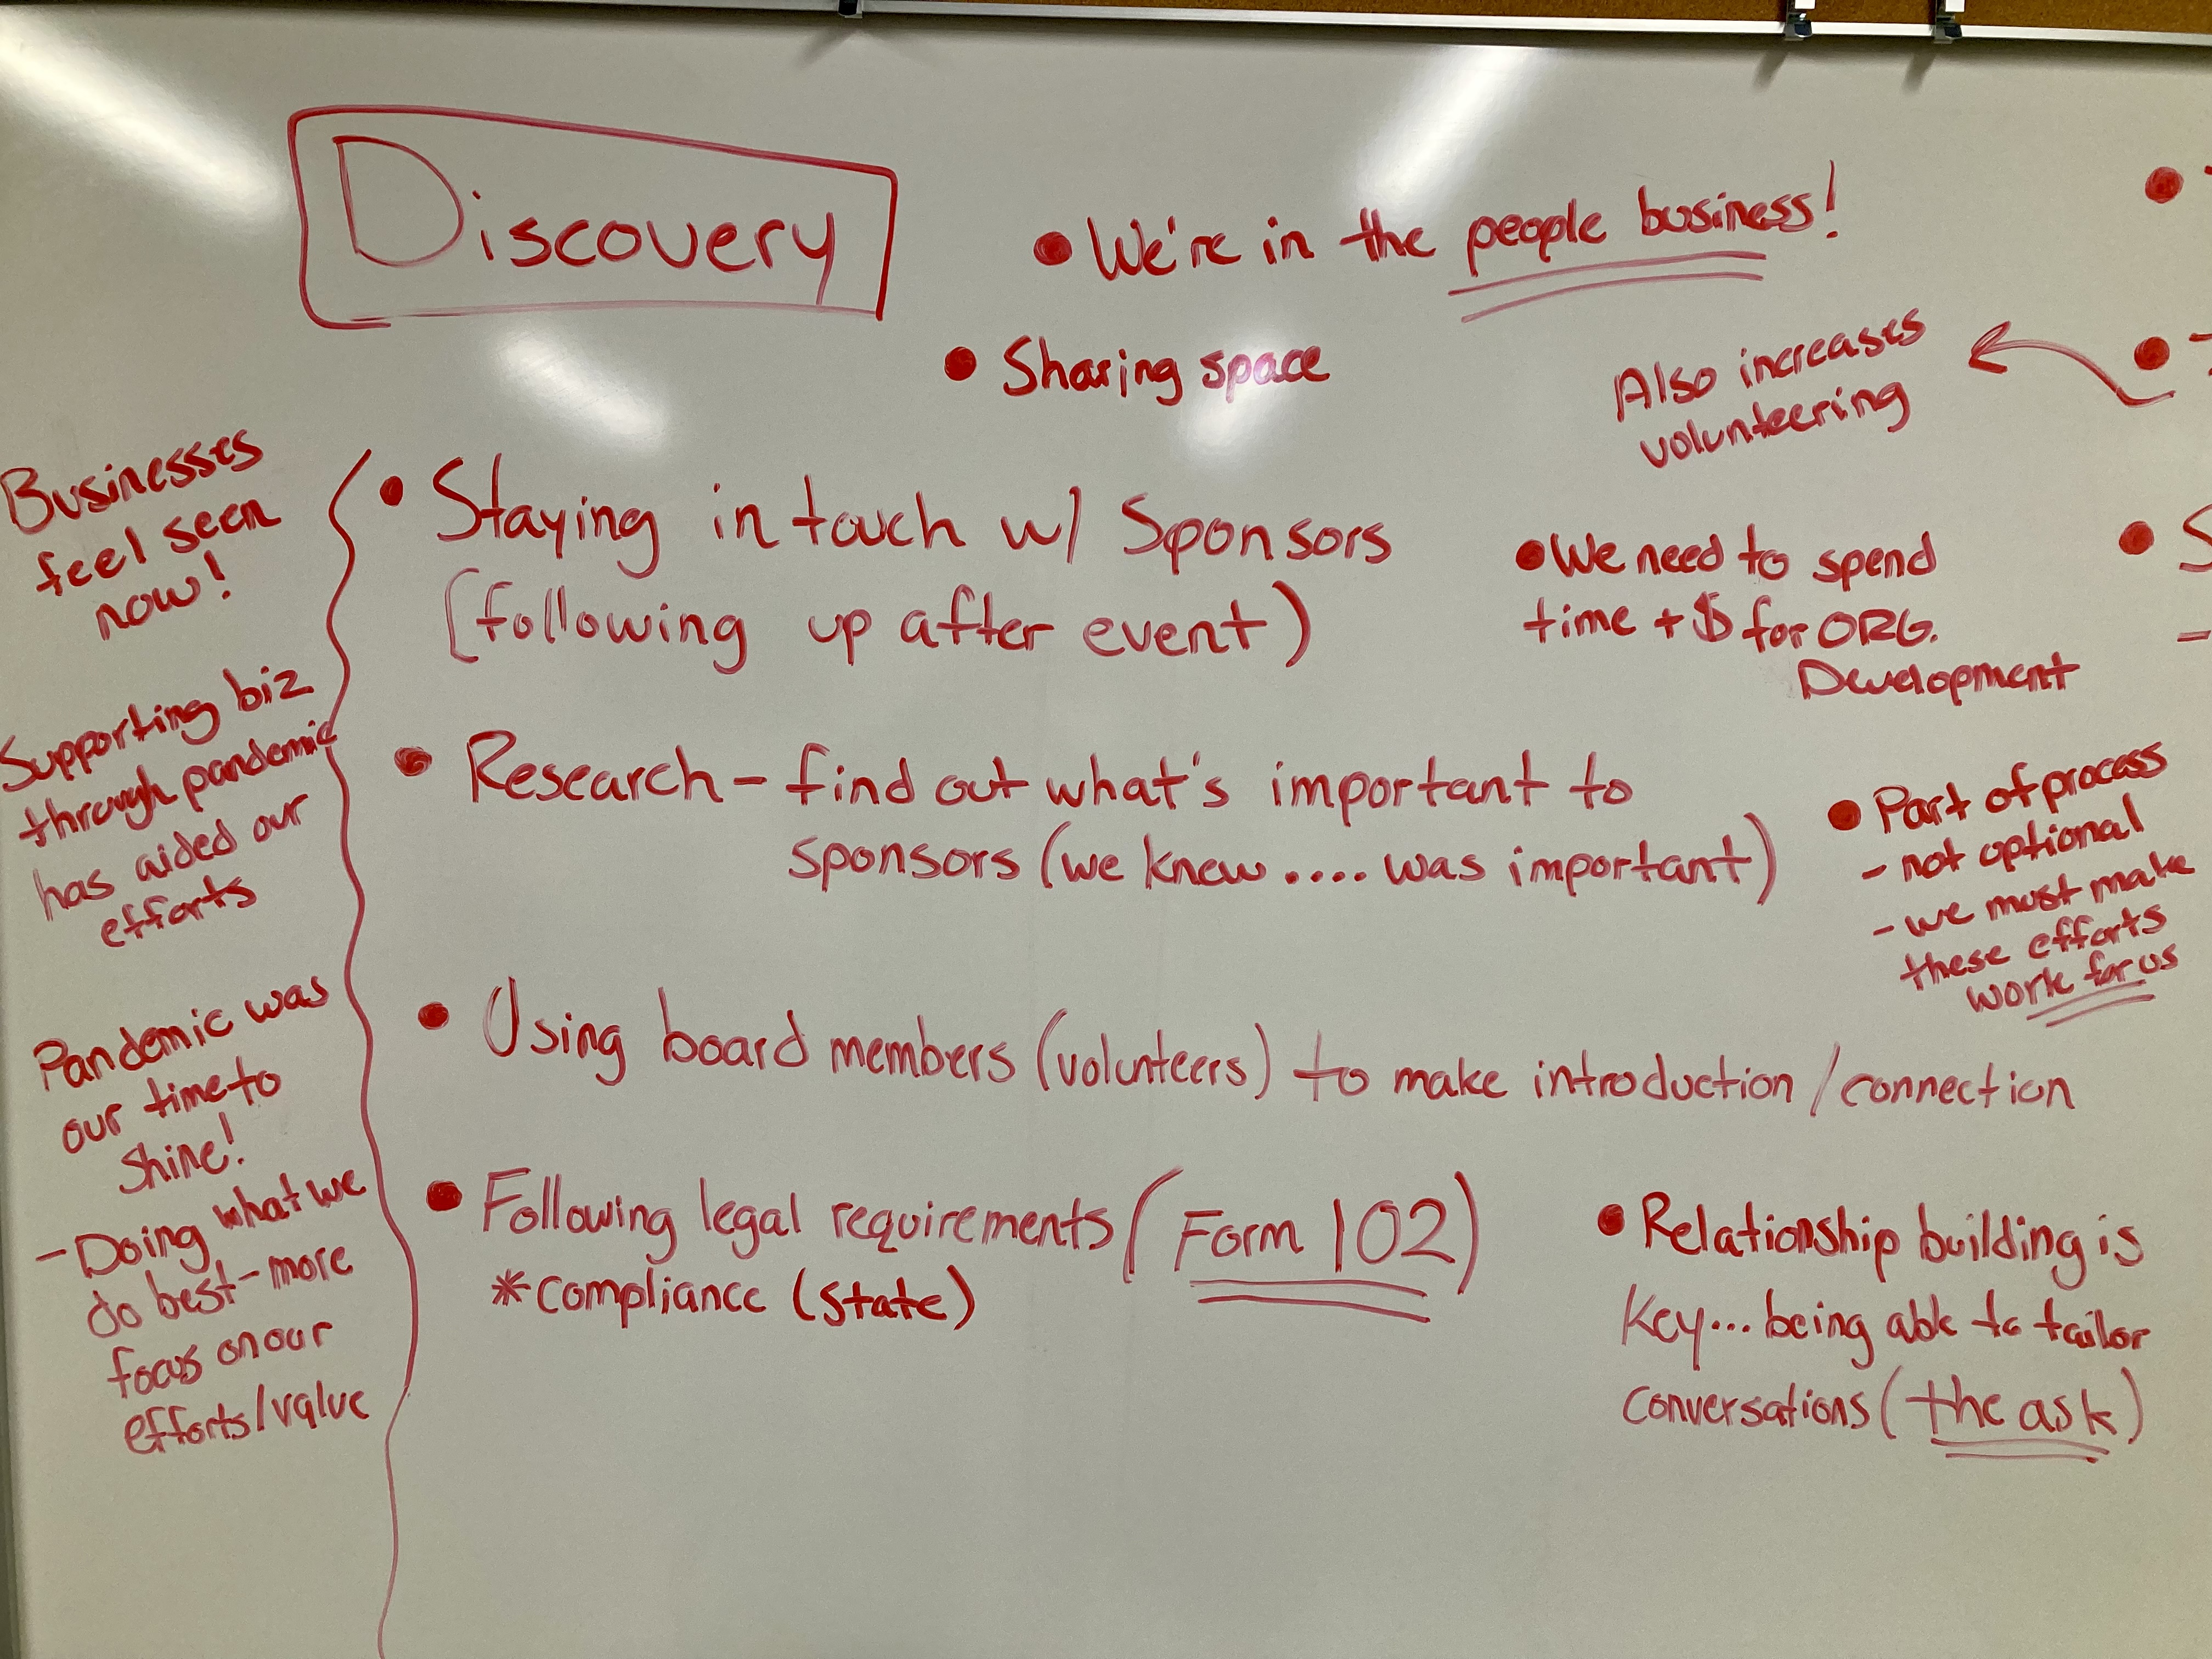 Discovery
• We're in the people business!
• Sharing space
Also increases
volunteering
Businesses
feel seen
now!
Supporting biz
through pandemic
has aided our
efforts
Pandemic was
our time to
shine!
- Doing what we
do best - more
focus on our
efforts/value
• Staying in touch w/ Sponsors
(following up after event)
• We need to spend
time + $ for ORG.
Development
• Research - find out what's important to
sponsors (we knew .... was important)
• Part of process
- not optional
- we must make
these efforts
work for us
• Using board members (volunteers) to make introduction/connection
• Following legal requirements (Form 102)
* compliance (state)
• Relationship building is
key... being able to tailor
conversations (the ask)